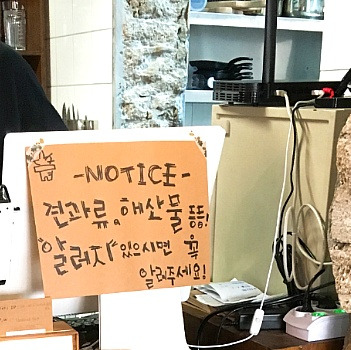 -NOTICE-
견과류, 해산물 등등!
"알러지" 있으시면 꼭
알려주세요!